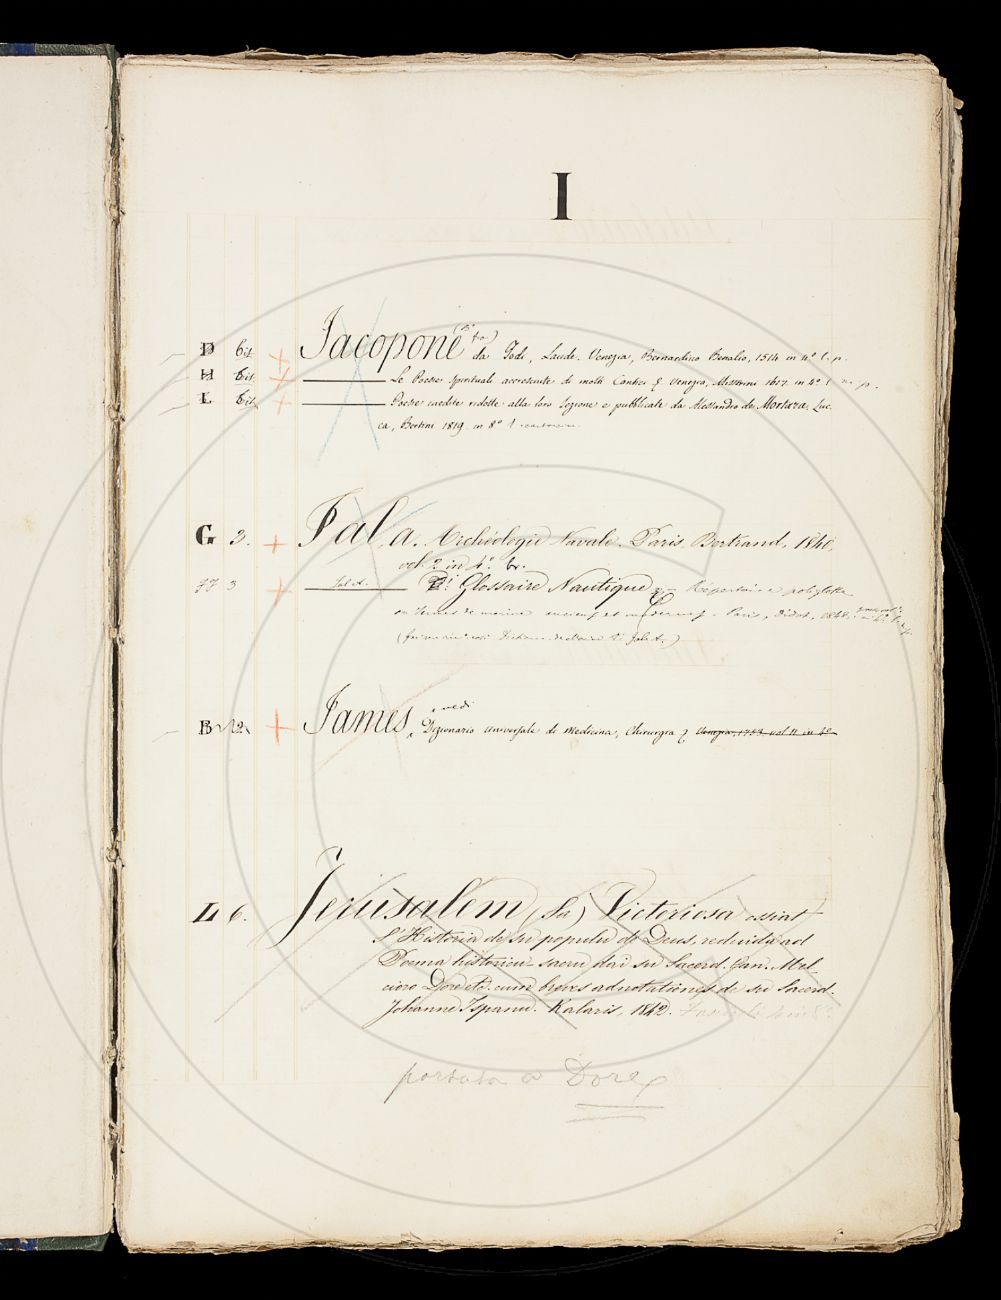 I
D bis Jacopone (Bto) da Todi, Laude. Venezia, Bernardino Benalio, 1514 in 4° l. p.
H bis Le Poesie spirituali accresciute di molti Cantici & Venezia, Misserini 1617. in 4° l m. p.
L bis Poesie inedite ridotte alla loro lezione e pubblicate da Alessandro de Mortara. Luc-
ca, Bertini 1819. in 8°
G 3. Jal, A. Archéologie Navale. Paris, Bertrand, 1840,
vol. 2 in 4° br.
3 Jal A. Glossaire Nautique Répertoire polyglotte
de marine anciens et modernes. Paris, Didot, 1848.
B 12 James, vedi
Dizionario universale di Medicina, Chirurgia & Venezia, 1753. vol 11 in 4°
L 6. Jerusalem (Sa) Victoriosa ossiat
S'Historia de su populu de Deus, reduida ad
Poema historicu sacru dai su Sacerd. Gan. Mel-
cioro Dore etc. cum breves adnotationes de su Sacerd.
Johanne Ispanu. Kalaris, 1842.
portato a Dore